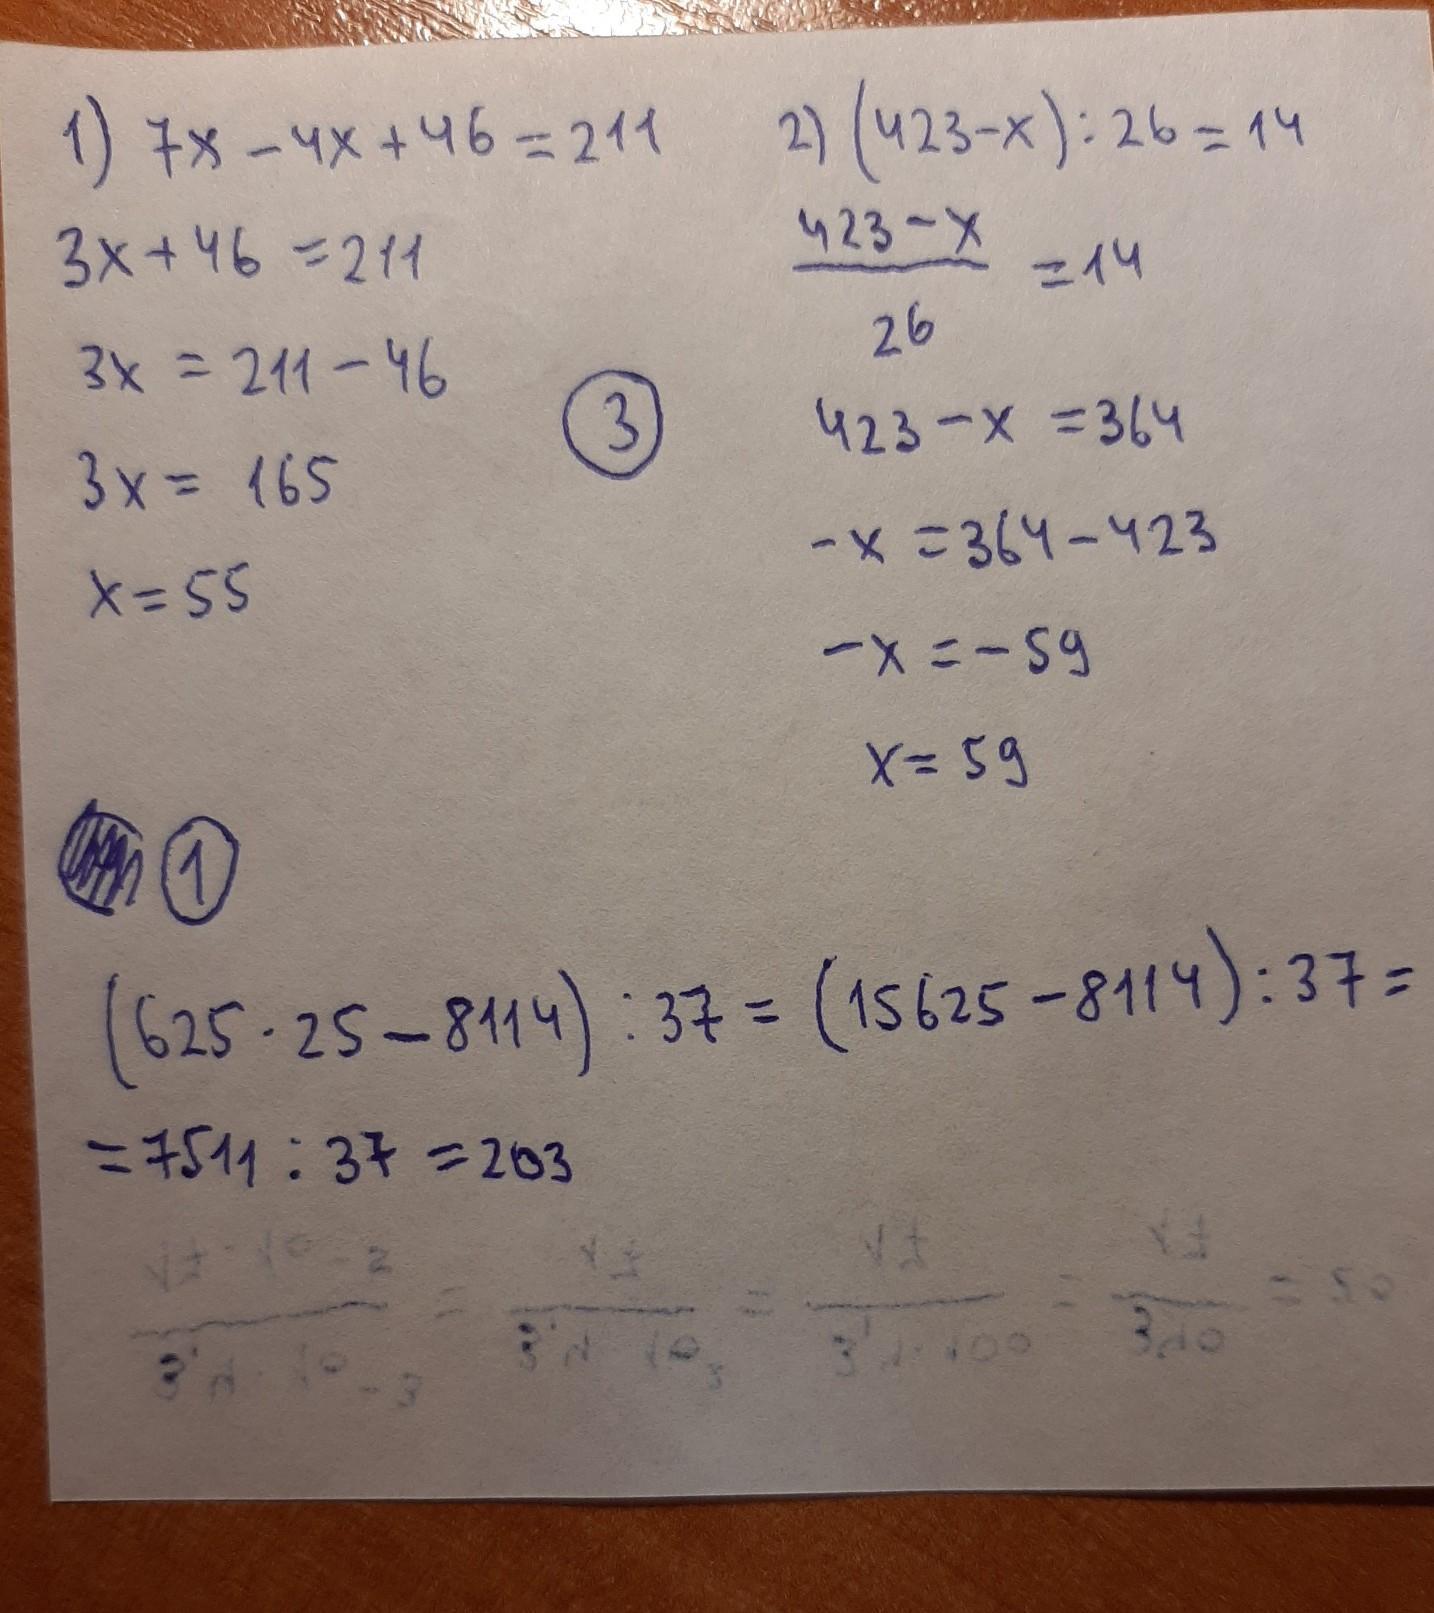 1) 7x - 4x + 46 = 211
3x + 46 = 211
3x = 211 - 46
3x = 165
x = 55
3
2) (423 - x) : 26 = 14
423 - x
26
= 14
423 - x = 364
-x = 364 - 423
-x = -59
x = 59
1
(625 · 25 - 8114) : 37 = (15625 - 8114) : 37 =
= 7511 : 37 = 203